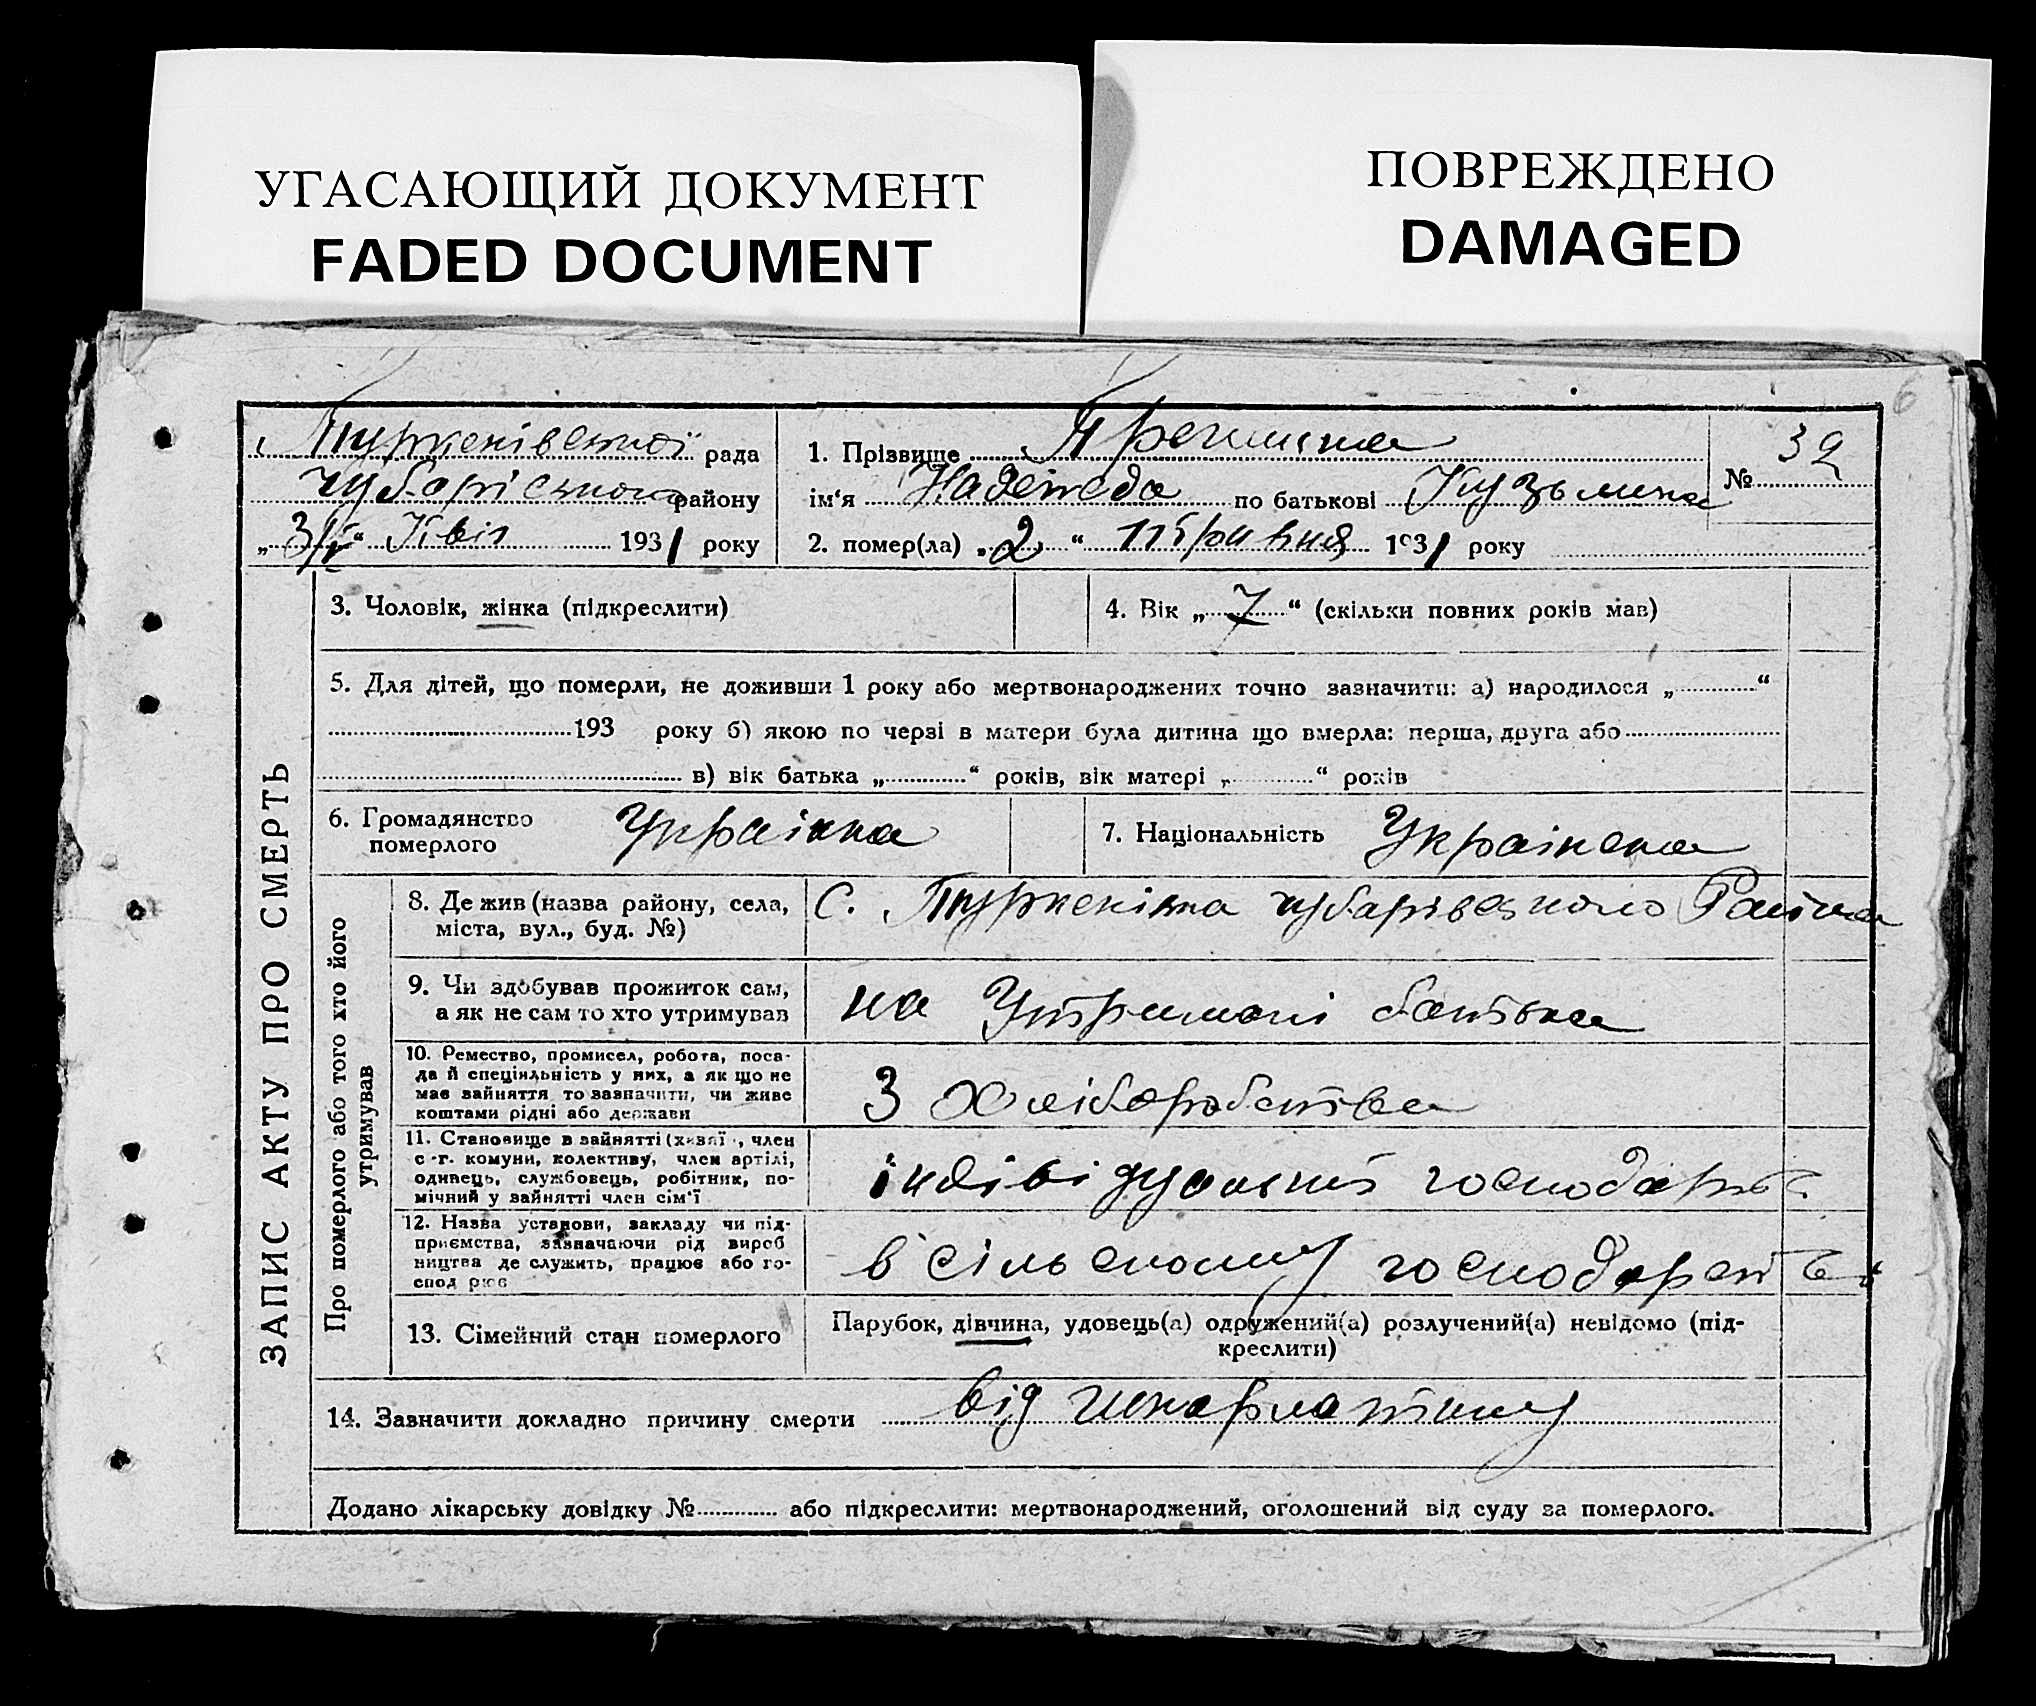 УГАСАЮЩИЙ ДОКУМЕНТ
FADED DOCUMENT
ПОВРЕЖДЕНО
DAMAGED
6
Туркенівської рада
Чубарівського району
„ “ 1931 року
1. Прізвище
ім‘я Надежда по батькові Кузьмина
2. помер(ла) „2“ травня 1931 року
№ 32
ЗАПИС АКТУ ПРО СМЕРТЬ
3. Чоловік, жінка (підкреслити)
4. Вік „7“ (скільки повних років мав)
5. Для дітей, що померли, не доживши 1 року або мертвонароджених точно зазначити: а) народилося „ “
193 року б) якою по черзі в матери була дитина що вмерла: перша, друга або
в) вік батька „ “ років, вік матері „ “ років
6. Громадянство померлого Українка
7. Національність Українка
Про померлого або того хто його утримував
8. Де жив (назва району, села,
міста, вул., буд. №)
С. Туркенівка Чубарівського Района
9. Чи здобував прожиток сам,
а як не сам то хто утримував
на Утримані батька
10. Ремество, промисел, робота, поса-
да й спеціяльність у них, а як що не
має зайняття то зазначити, чи живе
коштами рідні або держави
З Хліборобства
11. Становище в зайнятті (хазяї , член
с-г. комуни, колективу, член артілі,
одинець, службовець, робітник, по-
мічний у зайнятті член сім‘ї
12. Назва установи, закладу чи під-
приємства, зазначаючи рід вироб
ництва де служить, працює або го-
в сільському господарстві
13. Сімейний стан померлого
Парубок, дівчина, удовець(а) одружений(а) розлучений(а) невідомо (під-
креслити)
14. Зазначити докладно причину смерти від шкарлатини
Додано лікарську довідку № або підкреслити: мертвонароджений, оголошений від суду за померлого.